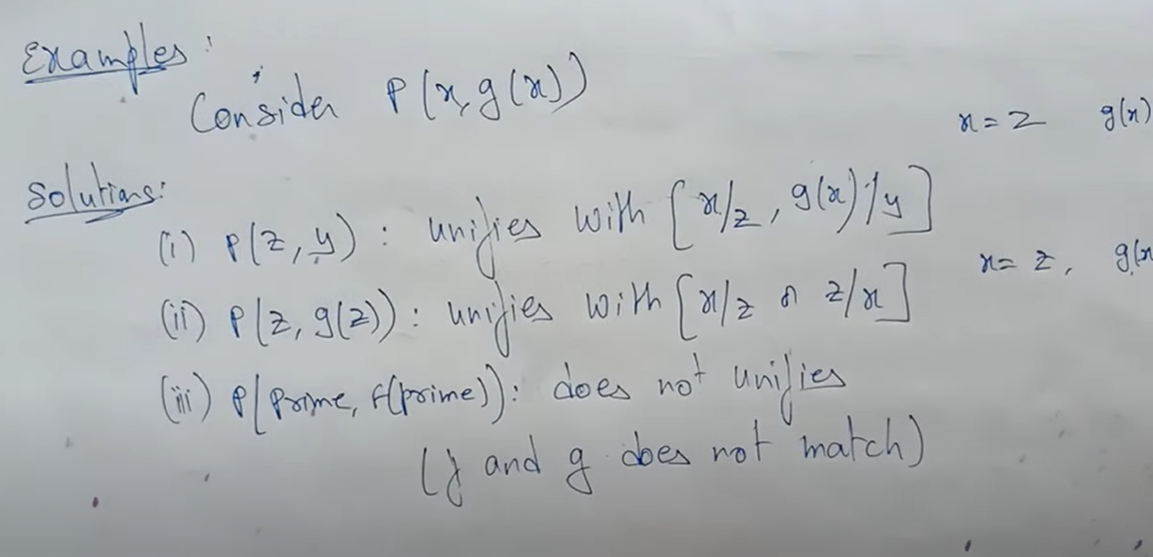 Examples:
Consider P(x, g(x))
x = z g(x)
Solutions:
(i) P(z, y) : unifies with [x/z, g(x)/y]
x = z, g(x
(ii) P(z, g(z)) : unifies with [x/z or z/x]
(iii) P(Prime, f(prime)) : does not unifies
(f and g does not match)